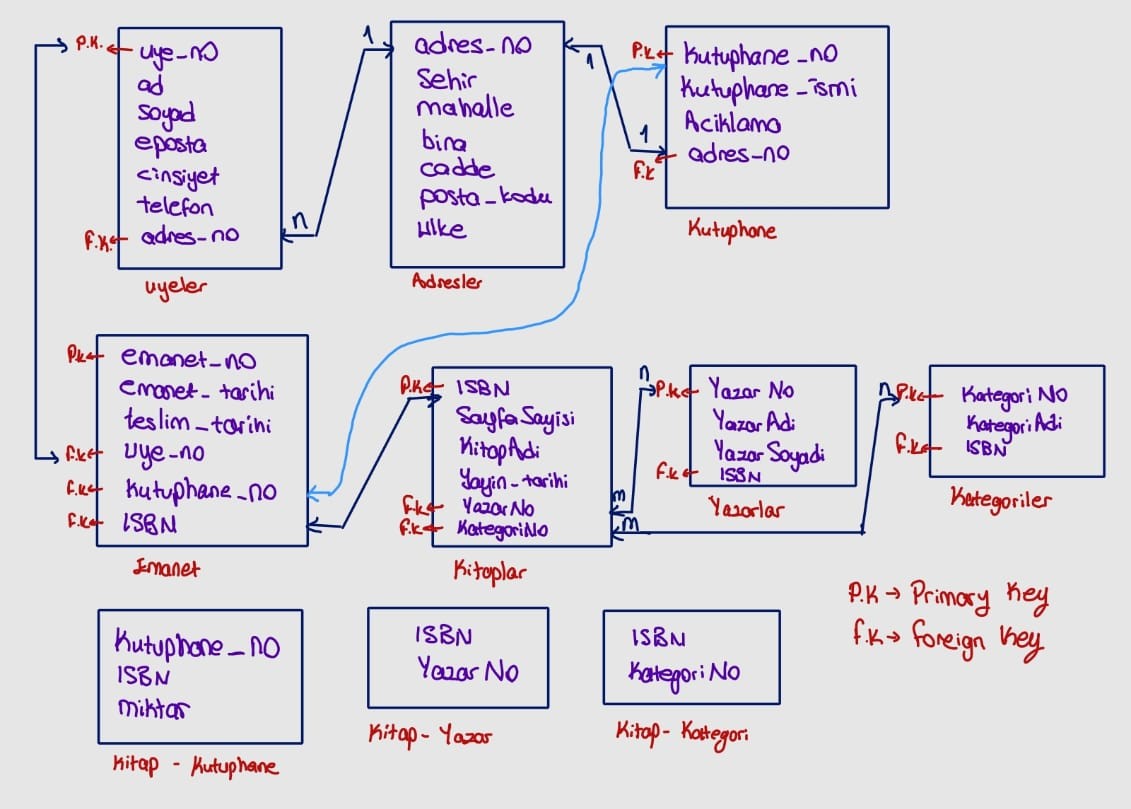 P.K. uye_no
ad
soyad
eposta
cinsiyet
telefon
F.K. adres_no
n
uyeler
1
adres_no
Sehir
mahalle
bina
cadde
posta_kodu
ulke
Adresler
1
1
P.K kutuphane_no
kutuphane_ismi
Aciklama
F.K adres_no
Kutuphane
P.K emanet_no
emanet_tarihi
teslim_tarihi
F.K uye_no
F.K kutuphane_no
F.K ISBN
Emanet
P.K ISBN
Sayfa Sayisi
Kitap Adi
Yayin_tarihi
F.K Yazar No
F.K Kategori No
Kitaplar
n
m
m
P.K Yazar No
Yazar Adi
Yazar Soyadi
F.K ISBN
Yazarlar
n
P.K Kategori NO
Kategori Adi
F.K ISBN
Kategoriler
Kutuphane_no
ISBN
miktar
Kitap - Kutuphane
ISBN
Yazar No
Kitap - Yazar
ISBN
Kategori No
Kitap - Kategori
P.K → Primary Key
F.K → Foreign Key